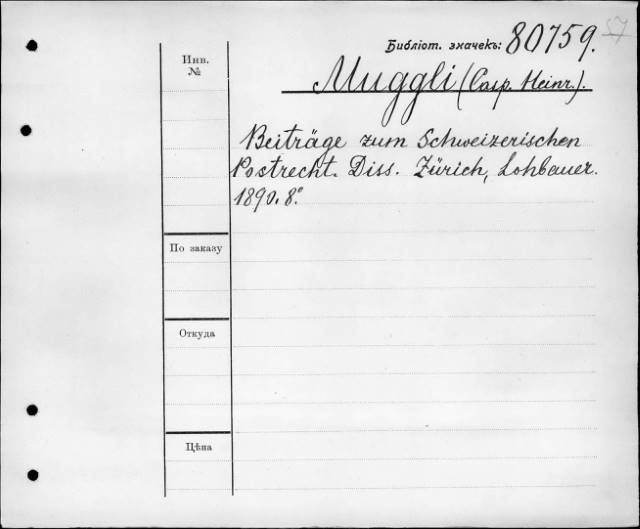 57
Библіот. значекъ: 80759.
Инв.
№
Muggli (Casp. Heinr.).
Beiträge zum Schweizerischen
Postrecht. Diss. Zürich, Lohbauer.
1890. 8°
По заказу
Откуда
Цѣна